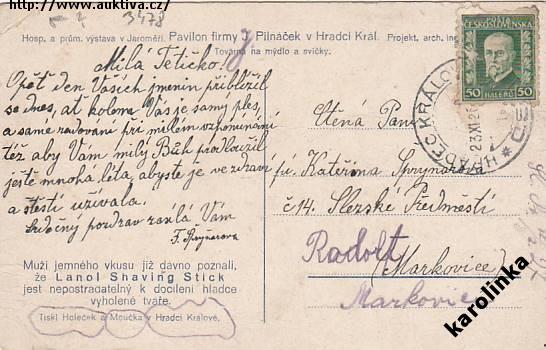 http://www.auktiva.cz/
3478
Hosp. a prům. výstava v Jaroměři. Pavilon firmy J. Pilnáček v Hradci Král. Projekt. arch. ine
Továrna na mýdlo a svíčky.
Milá Tetičko!
Opět den Vašich jmenin přiblížil
se dnes, ať kolem Vás je samý ples,
a samé radování při milém vzpomínání
též aby Vám milý Bůh prodloužil
ještě mnohá léta, abyste je ve zdraví
a štěstí užívala.
Srdečný pozdrav zasílá Vám
F. Sprynarova
Muži jemného vkusu již dávno poznali,
že Lanol Shaving Stick
jest nepostradatelný k docílení hladce
vyholené tváře.
Tiskl Holeček a Moučka v Hradci Králové.
ČESKOSLOVENSKO
50 HALÉŘŮ 50
HRADEC KRÁLOVÉ
23.XI.2
Ctěná Paní
pí. Kateřina Sprynarova
č 14 Slezské Předměstí
Radolt
(Markovice)
Markovic
karolinka